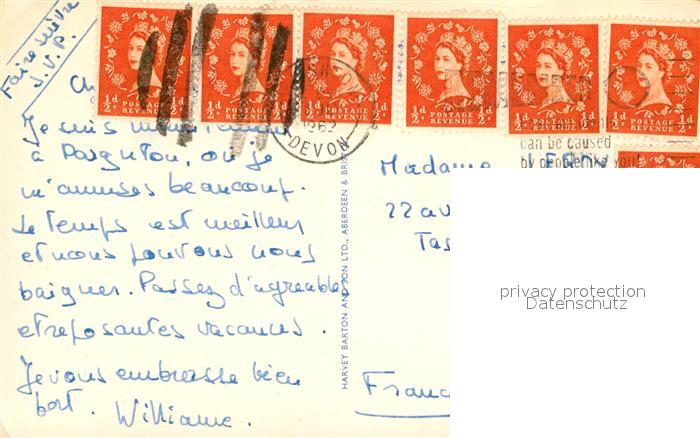 Faire suivre
S.V.P.
½d POSTAGE REVENUE ½d
½d POSTAGE REVENUE ½d
½d POSTAGE REVENUE ½d
½d POSTAGE REVENUE ½d
½d POSTAGE REVENUE ½d
½d POSTAGE REVENUE ½d
1962
DEVON
can be caused
by people like you
Je suis maintenant
à Paignton, où je
m'amuse beaucoup.
Le temps est meilleur
et nous pouvons nous
baigner. Passez d'agréables
et reposantes vacances.
Je vous embrasse bien
fort. Williame.
HARVEY BARTON AND SON LTD., ABERDEEN & BRIS
Madame
22 av
Tas
Franc
privacy protection
Datenschutz